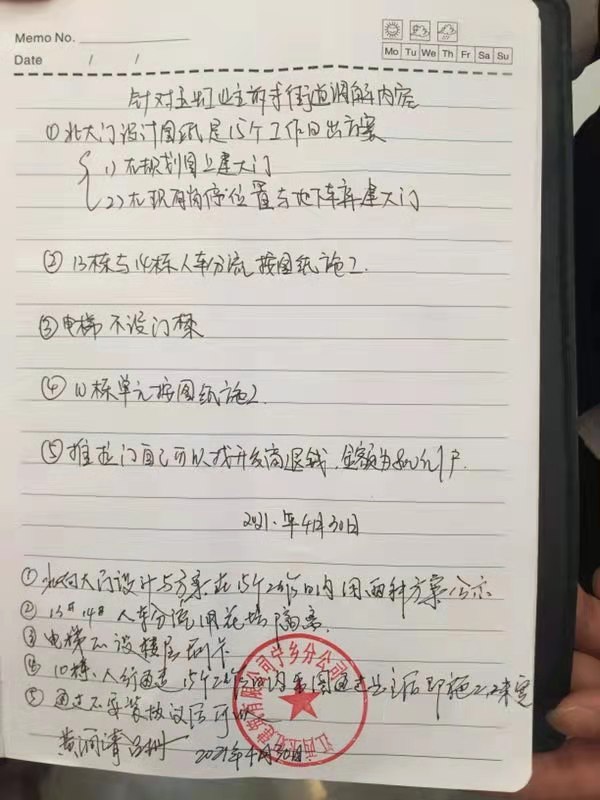 Memo No.
Date / /
Mo Tu We Th Fr Sa Su
针对五灯业主前来街道调解内容
①北大门设计图纸是15个工作日出方案
1)在规划图上建大门
2)在现有岗亭位置与地下车库建大门
②13栋与14栋人车分流按图纸施工.
③电梯不设门禁
④10栋单元按图纸施工.
⑤推拉门自己可以找开发商退钱,金额为800元/户.
2021.年4月30日
①北向大门设计与方案在15个工作日内用两种方案公示
②13# 14# 人车分流用花坛隔离.
③电梯不设楼层刷卡
④10栋、人行通道15个工作日内出图通过业主后即施工
⑤通过不安装协议后可以
2021年4月30日
有限公司宁乡分公司